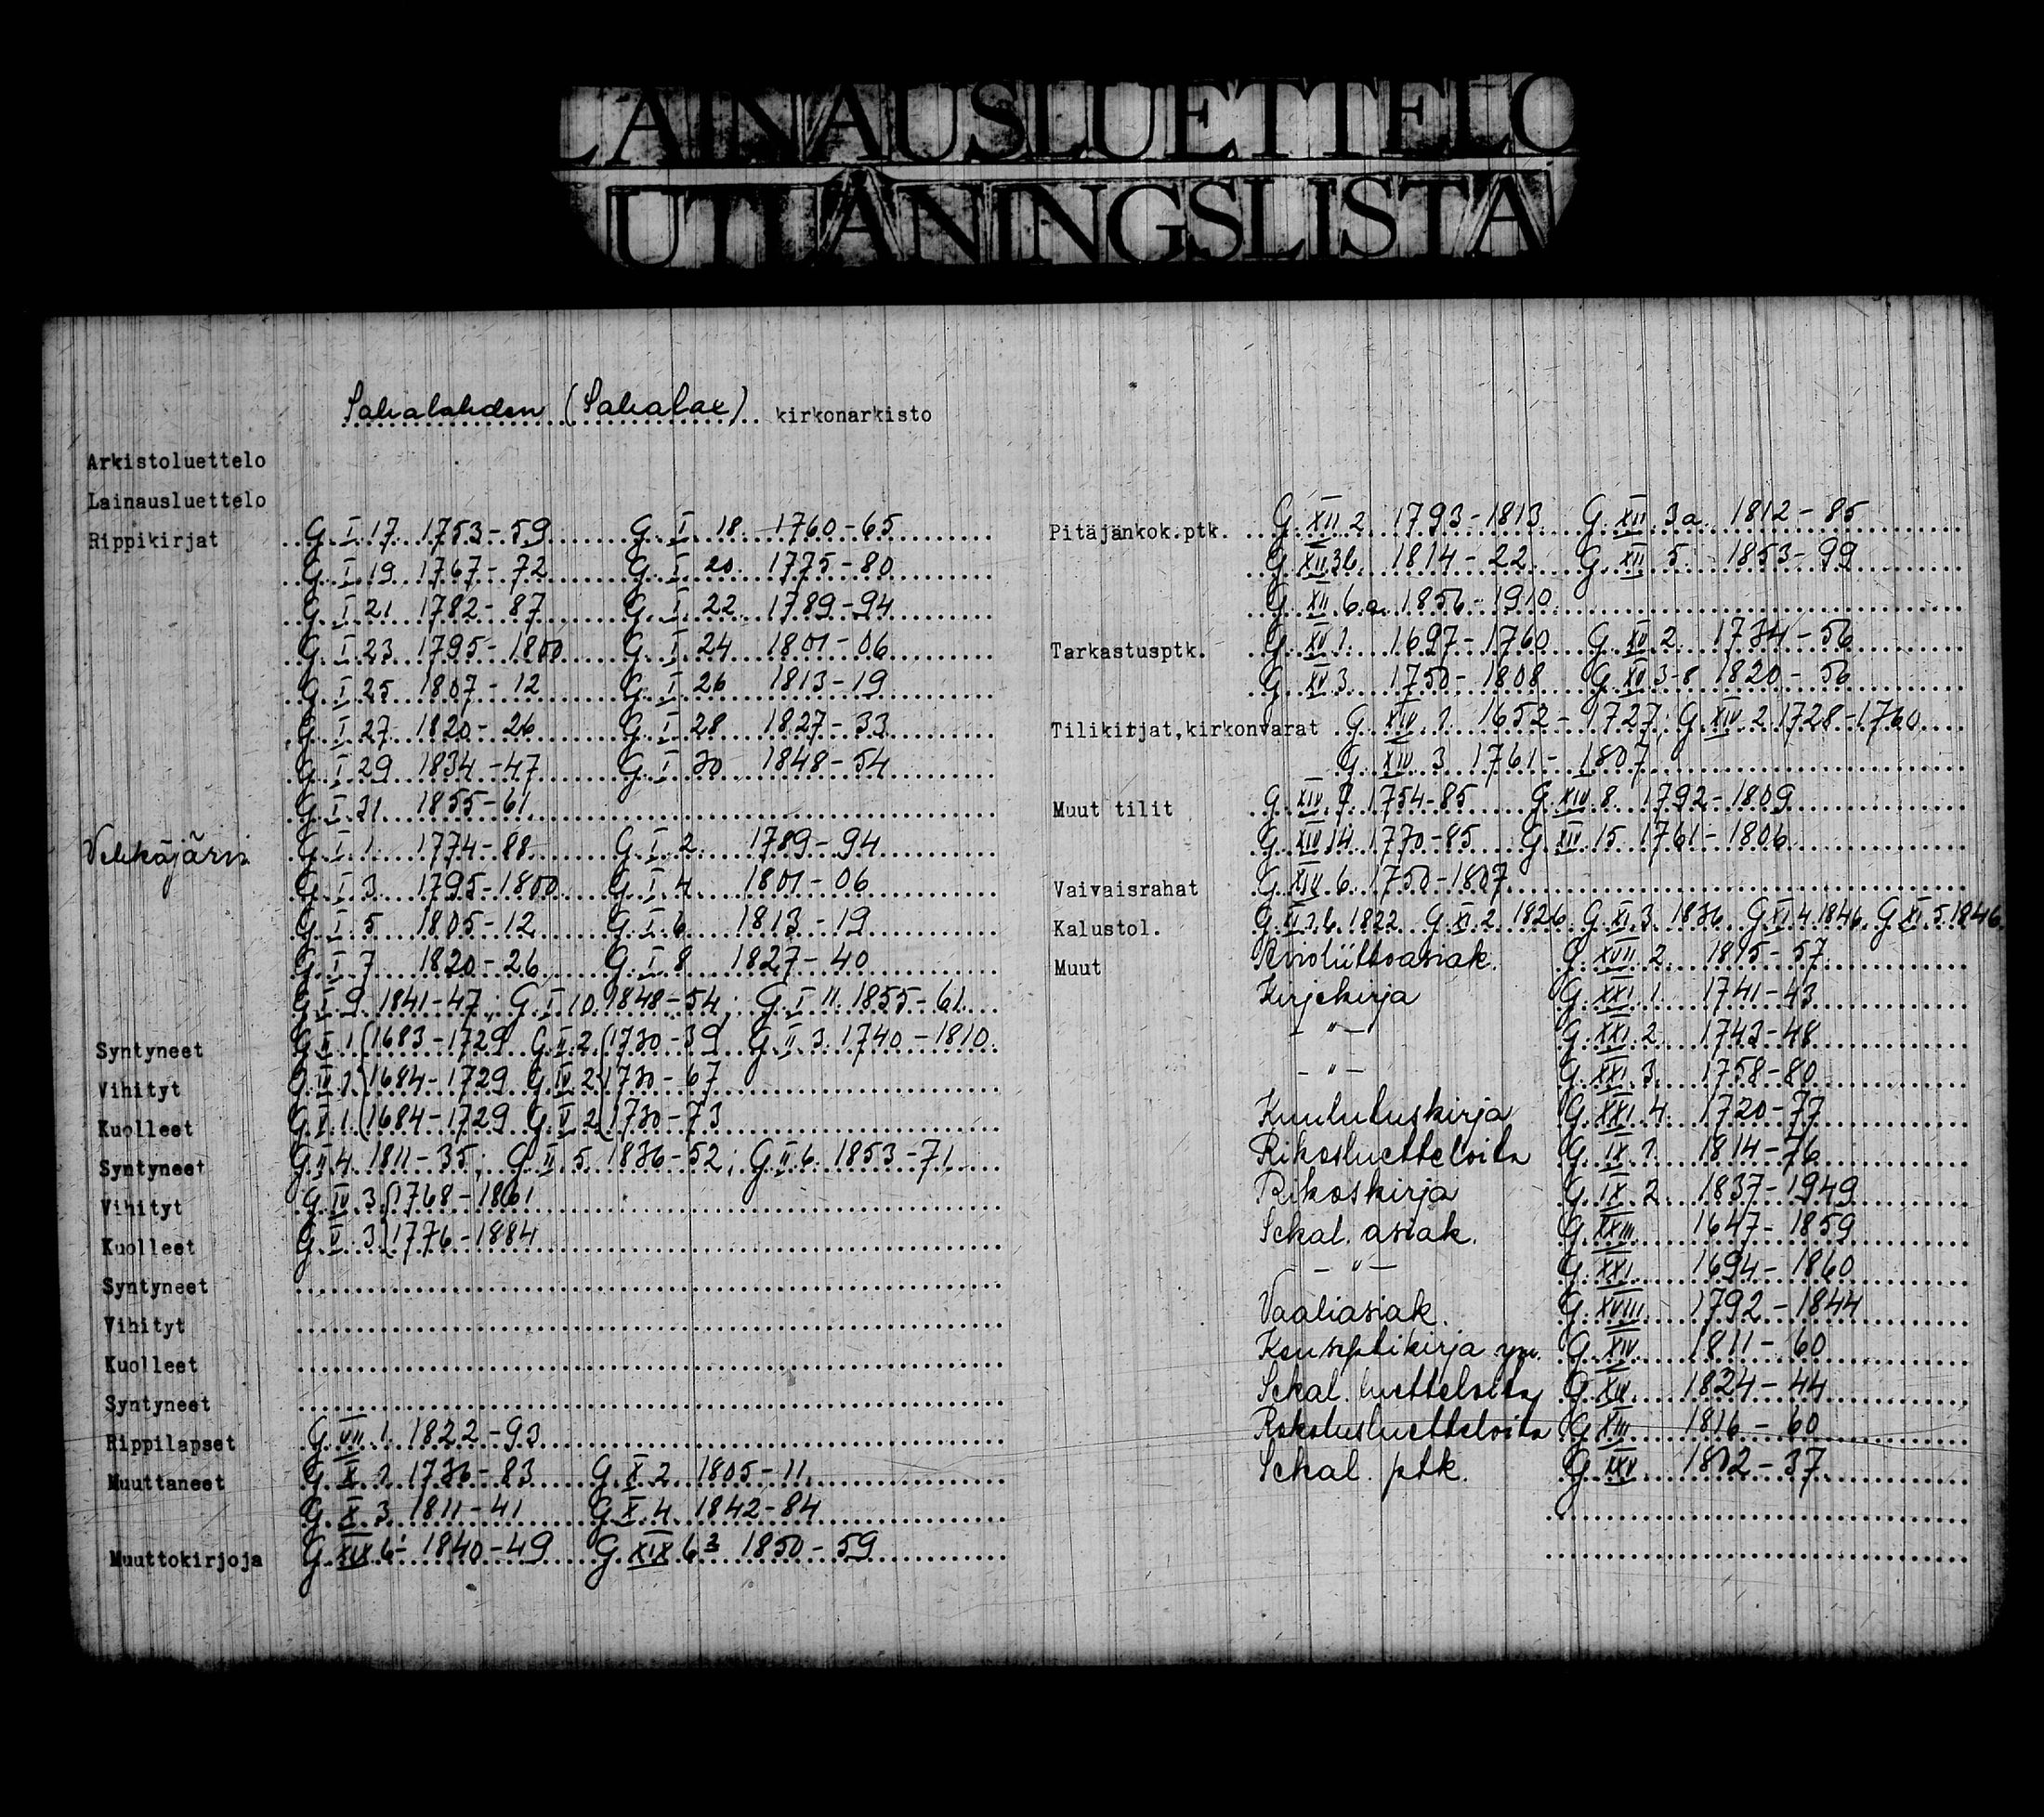 LAINAUSLUETTELO
UTLÅNINGSLISTA
Sahalahden (Sahalax) kirkonarkisto
Arkistoluettelo
Lainausluettelo
Rippikirjat G. I. 17 1753-59 G. I. 18 1760-65
G. I. 19 1767-72 G. I. 20 1775-80
G. I. 21 1782-87 G. I. 22 1789-94
G. I. 23 1795-1800 G. I. 24 1801-06
G. I. 25 1807-12 G. I. 26 1813-19
G. I. 27 1820-26 G. I. 28 1827-33
G. I. 29 1834-47 G. I. 30 1848-54
G. I. 31 1855-61
G. I. 1 1774-88 G. I. 2 1789-94
G. I. 3 1795-1800 G. I. 4 1801-06
G. I. 5 1805-12 G. I. 6 1813-19
G. I. 7 1820-26 G. I. 8 1827-40
G. I. 9 1841-47; G. I. 10 1848-54; G. I. 11 1855-61
Syntyneet G. II. 1 (1683-1729 G. II. 2 (1730-39 G. II. 3 1740-1810
Vihityt G. IV. 1 1684-1729 G. IV. 2 1730-67
Kuolleet G. V. 1 (1684-1729 G. V. 2 (1730-73
Syntyneet G. II. 4 1811-35; G. II. 5 1836-52; G. II. 6 1853-71
Vihityt G. IV. 3 (1768-1861
Kuolleet G. V. 3 (1776-1884
Syntyneet
Vihityt
Kuolleet
Syntyneet
Rippilapset G. VII. 1 1822-93
Muuttaneet G. X. 1 1736-83 G. X. 2 1805-11
G. X. 3 1811-41 G. X. 4 1842-84
Muuttokirjoja G. XIX 6 1840-49 G. XIX 6³ 1850-59
Pitäjänkok.ptk. G. XII 2 1793-1813 G. XII. 3a 1812-85
G. XII 3b 1814-22 G. XII 5 1853-99
G. XII 6a 1856-1910
Tarkastusptk. G. XV 1. 1697-1760 G. XV 2 1734-56
G. XV 3 1750-1808 G. XV 3-8 1820-56
Tilikirjat,kirkonvarat G. XIV. 1. 1652-1727; G. XIV. 2 1728-1760
G. XIV 3 1761-1807
Muut tilit G. XIV. 7 1754-85 G. XIV. 8 1792-1809
G. XIV 14 1770-85 G. XIV 15 1761-1806
Vaivaisrahat G. XIV. 6 1750-1807
Kalustol. 1822 G. XI. 2 1826 G. XI. 3 1836 G XI 4 1846 G XI 5 1846
Muut Avioliittoasiak. G. XVII. 2 1815-57
Kirjekirja G. XXI. 1. 1741-43
- " - G. XXI. 2 1743-48
- " - G. XXI. 3 1758-80
Kuulutuskirja G. XXI. 4 1720-77
Rikosluetteloita G. IX. 1 1814-76
Rikoskirja G. IX. 2 1837-1949
Sekal. asiak. G. XXIII 1647-1859
- " - G. XXI 1694-1860
Vaaliasiak. G. XVIII 1792-1844
Konseptikirja ym. G. XIV 1811-60
Sekal. luetteloita G. XV 1824-44
Rokotusluetteloita G. XIII 1816-60
Sekal. ptk. G. 1802-37